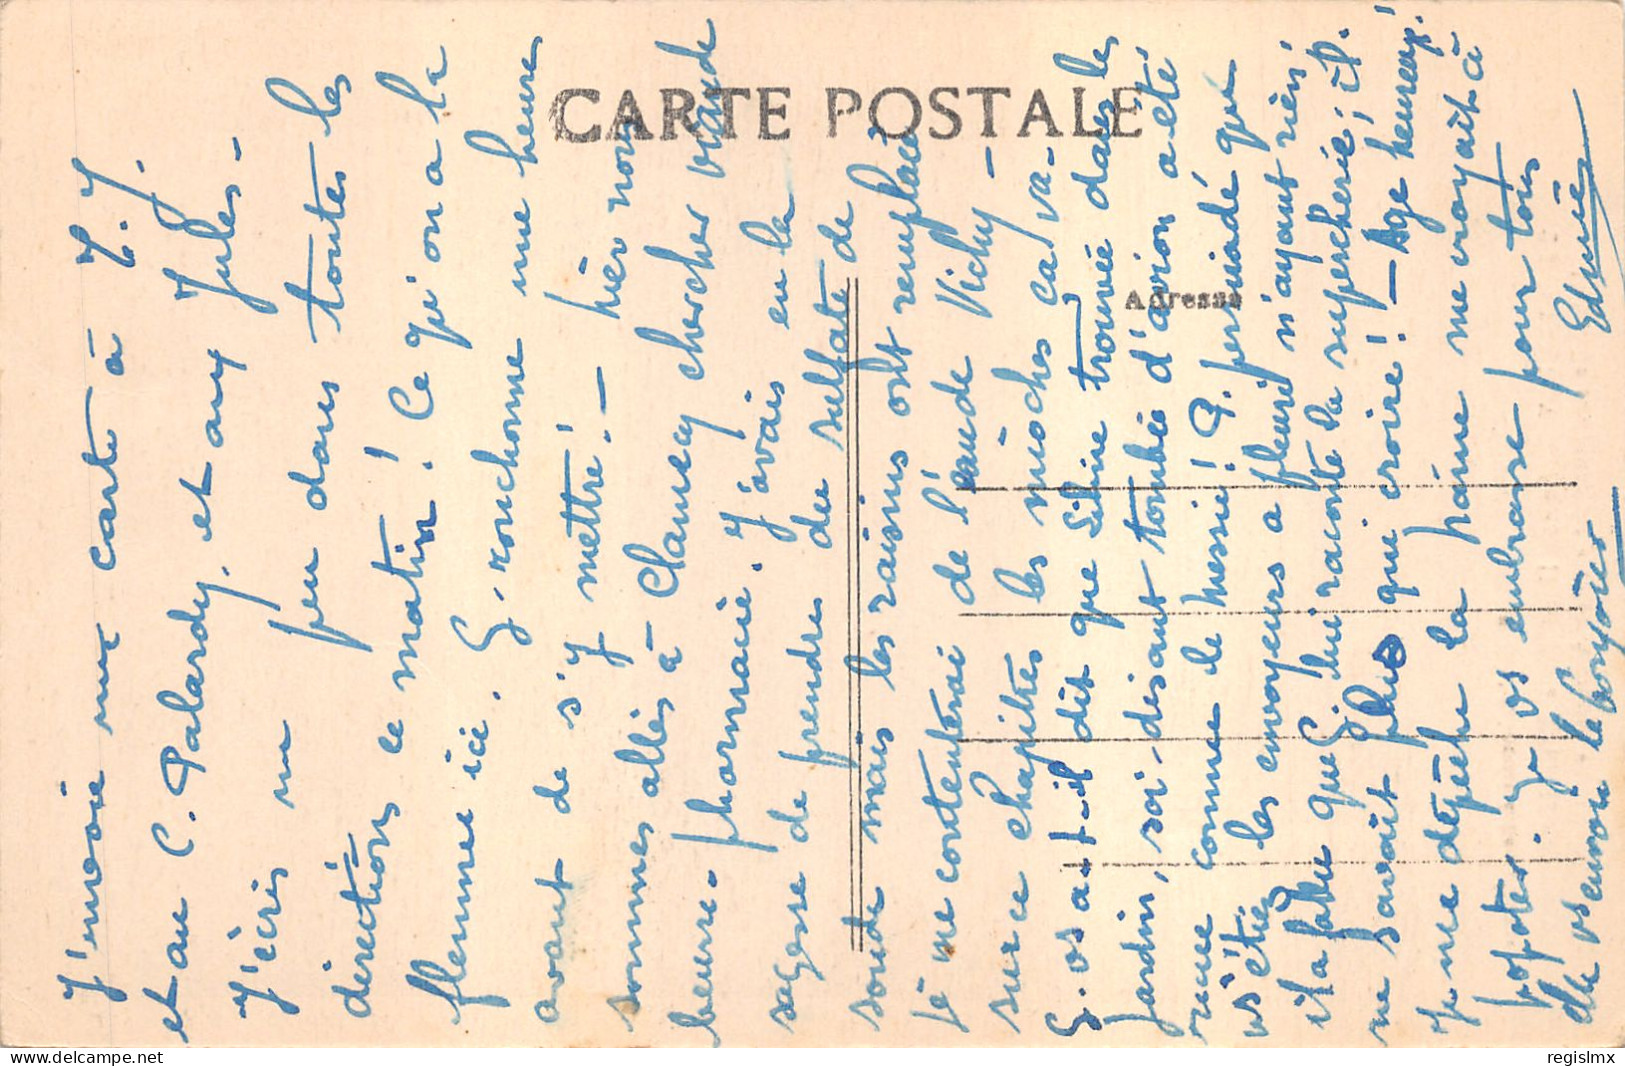 CARTE POSTALE
Adresse
J'envoie une carte à T. J.
et au C. Palardy. et aux Jules -
J'écris un peu dans toutes les
directions ce matin! Ce qu'on a la
flemme ici. G. ronchonne une heure
avant de s'y mettre! - hier nous
sommes allés à Clamecy chercher viande
beurre - pharmacie. J'avais eu la
sagesse de prendre du sulfate de
soude mais les raisins ont remplacé
je me contenterai de l'eau de Vichy -
sur ce chapitre les mioches ça va -
G. vs a t-il dit que Line trouvée dans le
jardin, soi-disant tombée d'avion a été
reçue comme le messie! P. persuadé que
vs étiez les envoyeurs a pleuré n'ayant rien;
il a fallu que G. lui raconte la supercherie; il
ne savait plus qui croire! - Age heureux!
je me dépêche la mé me croyait à
popoter. Je vs embrasse pour tous
Edmée